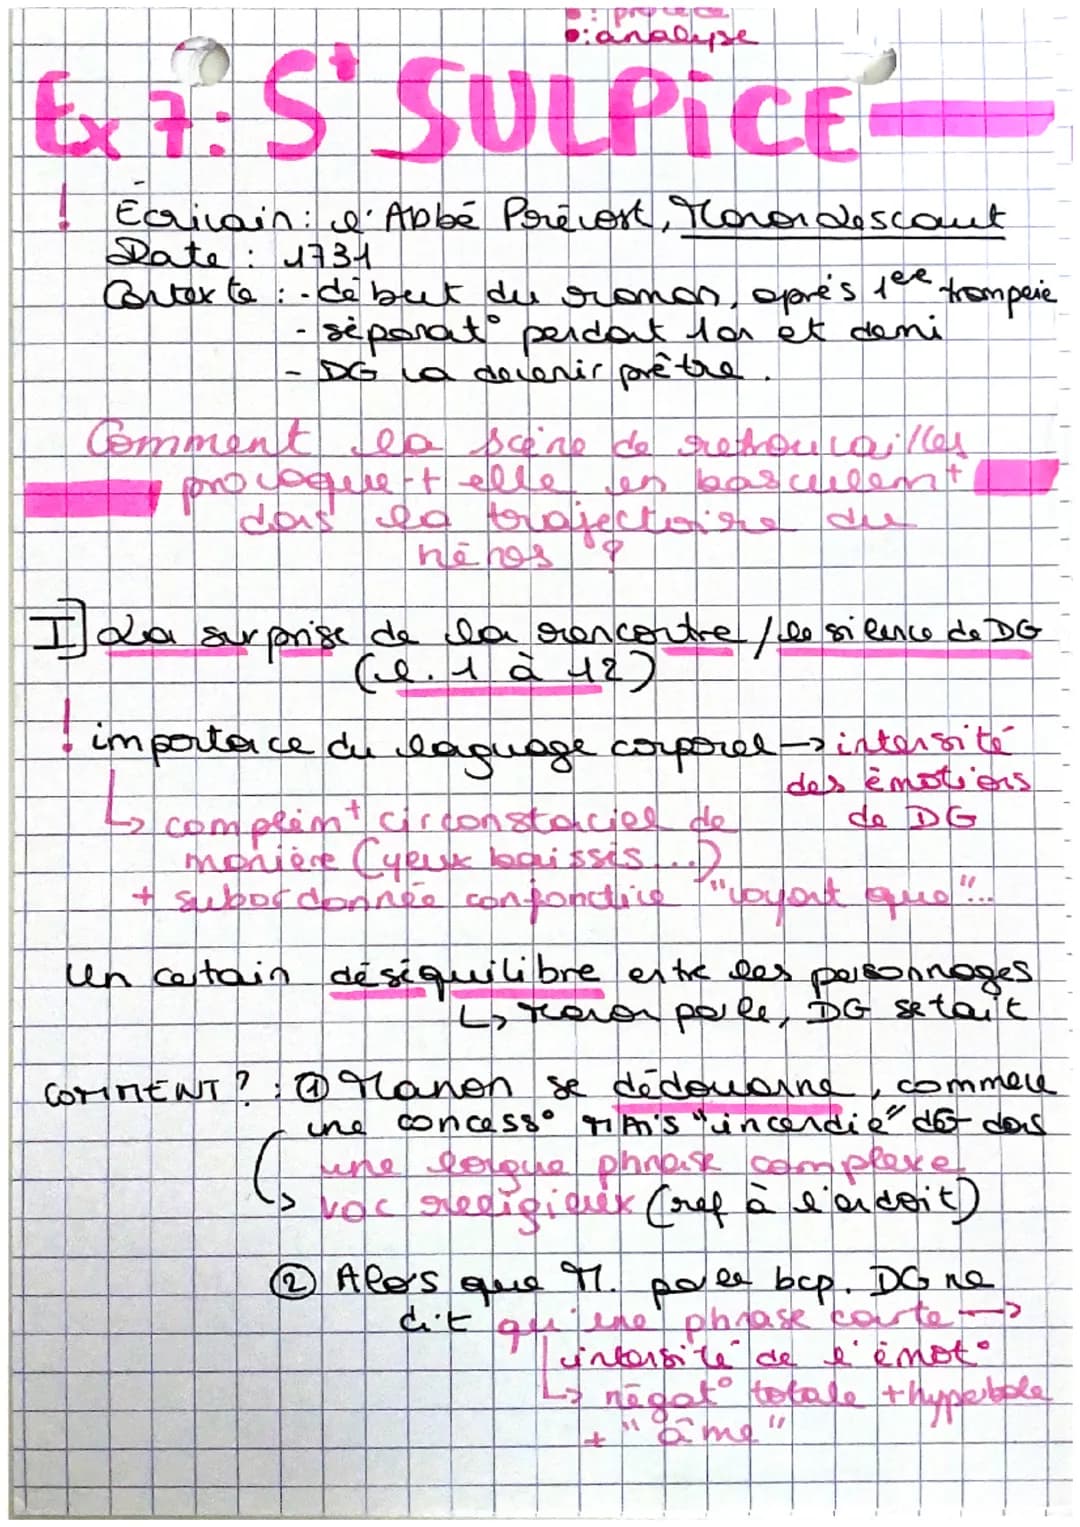 : procédé
: analyse
Ex 7: St SULPiCE
! Écrivain : l'Abbé Prévost, Manon Lescaut
Date : 1731
Contexte : - début du roman, après 1ère tromperie
- séparat° pendant 1 an et demi
- DG va devenir prêtre.
Comment la scène de retrouvailles
provoque-t elle un basculemt
dans la trajectoire du
héros ?
I] La surprise de la rencontre / le silence de DG
(l. 1 à 12)
! importance du language corporel → intensité
des émotions
de DG
↳ complémt circonstanciel de
manière (yeux baissés...)
+ subordonnée conjonctive "voyant que"...
un certain déséquilibre entre les personnages
↳ Manon parle, DG se tait
COMMENT ? : ① Manon se dédouane, comme
une concess° MAis "incendie" DG dans
une longue phrase complexe
↳ voc religieux (ref à l'endroit)
② Alors que M. parle bcp. DG ne
dit qu'une phrase courte →
intensité de l'émot°
↳ négat° totale + hyperbole
+ "âme"